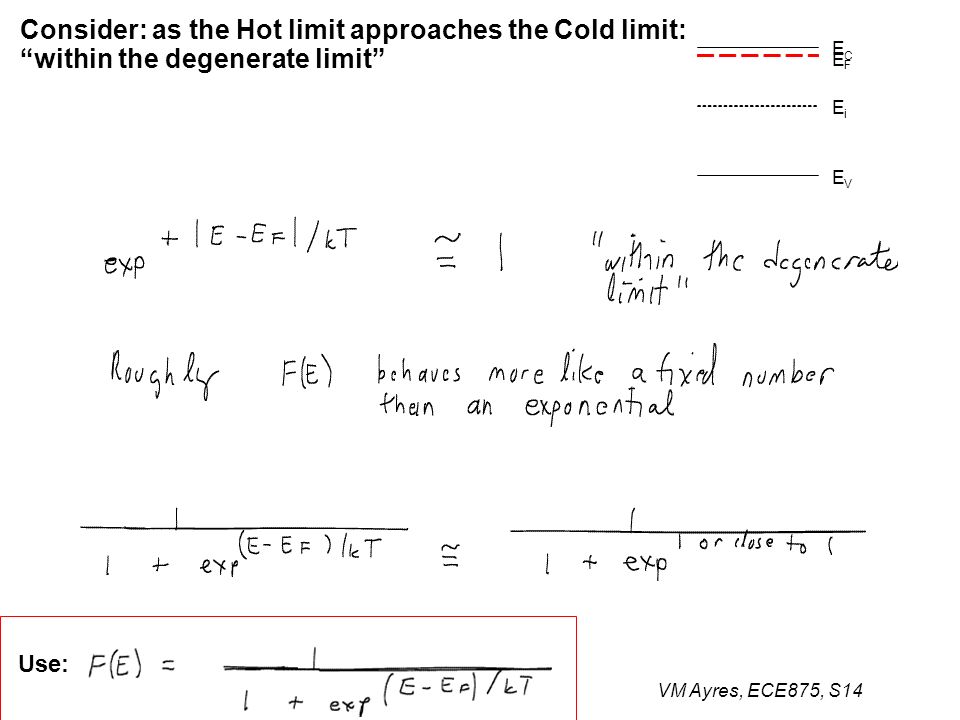 Consider: as the Hot limit approaches the Cold limit:
“within the degenerate limit”
EC
EF
Ei
EV
exp + |E - EF|/kT ≅ 1 "within the degenerate
limit"
Roughly F(E) behaves more like a fixed number
than an exponential
1 / 1 + exp (E - EF)/kT ≅ 1 / 1 + exp 1 or close to 1
Use: F(E) = 1 / 1 + exp (E - EF)/kT
VM Ayres, ECE875, S14